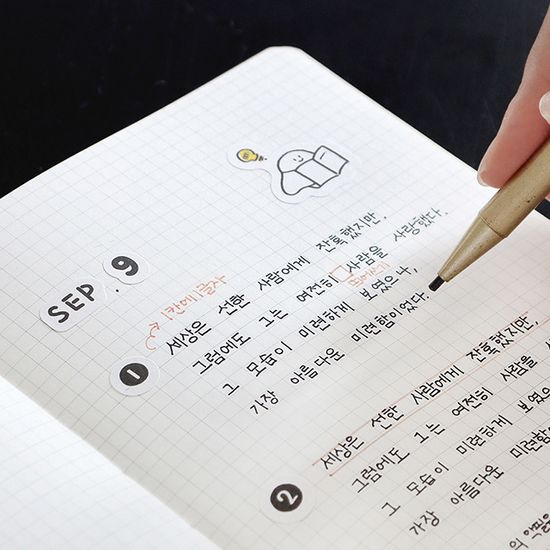 SEP. 9
1칸에 1글자
1
세상은 선한 사람에게 잔혹했지만,
그럼에도 그는 여전히 사람을 사랑했다.
띄어쓰기
그 모습이 미련하게 보였으나,
가장 아름다운 미련함이었다.
2
세상은 선한 사람에게 잔혹했지만,
그럼에도 그는 여전히 사람을
그 모습이 미련하게 보였으
가장 아름다운 미련함이
의 악필을